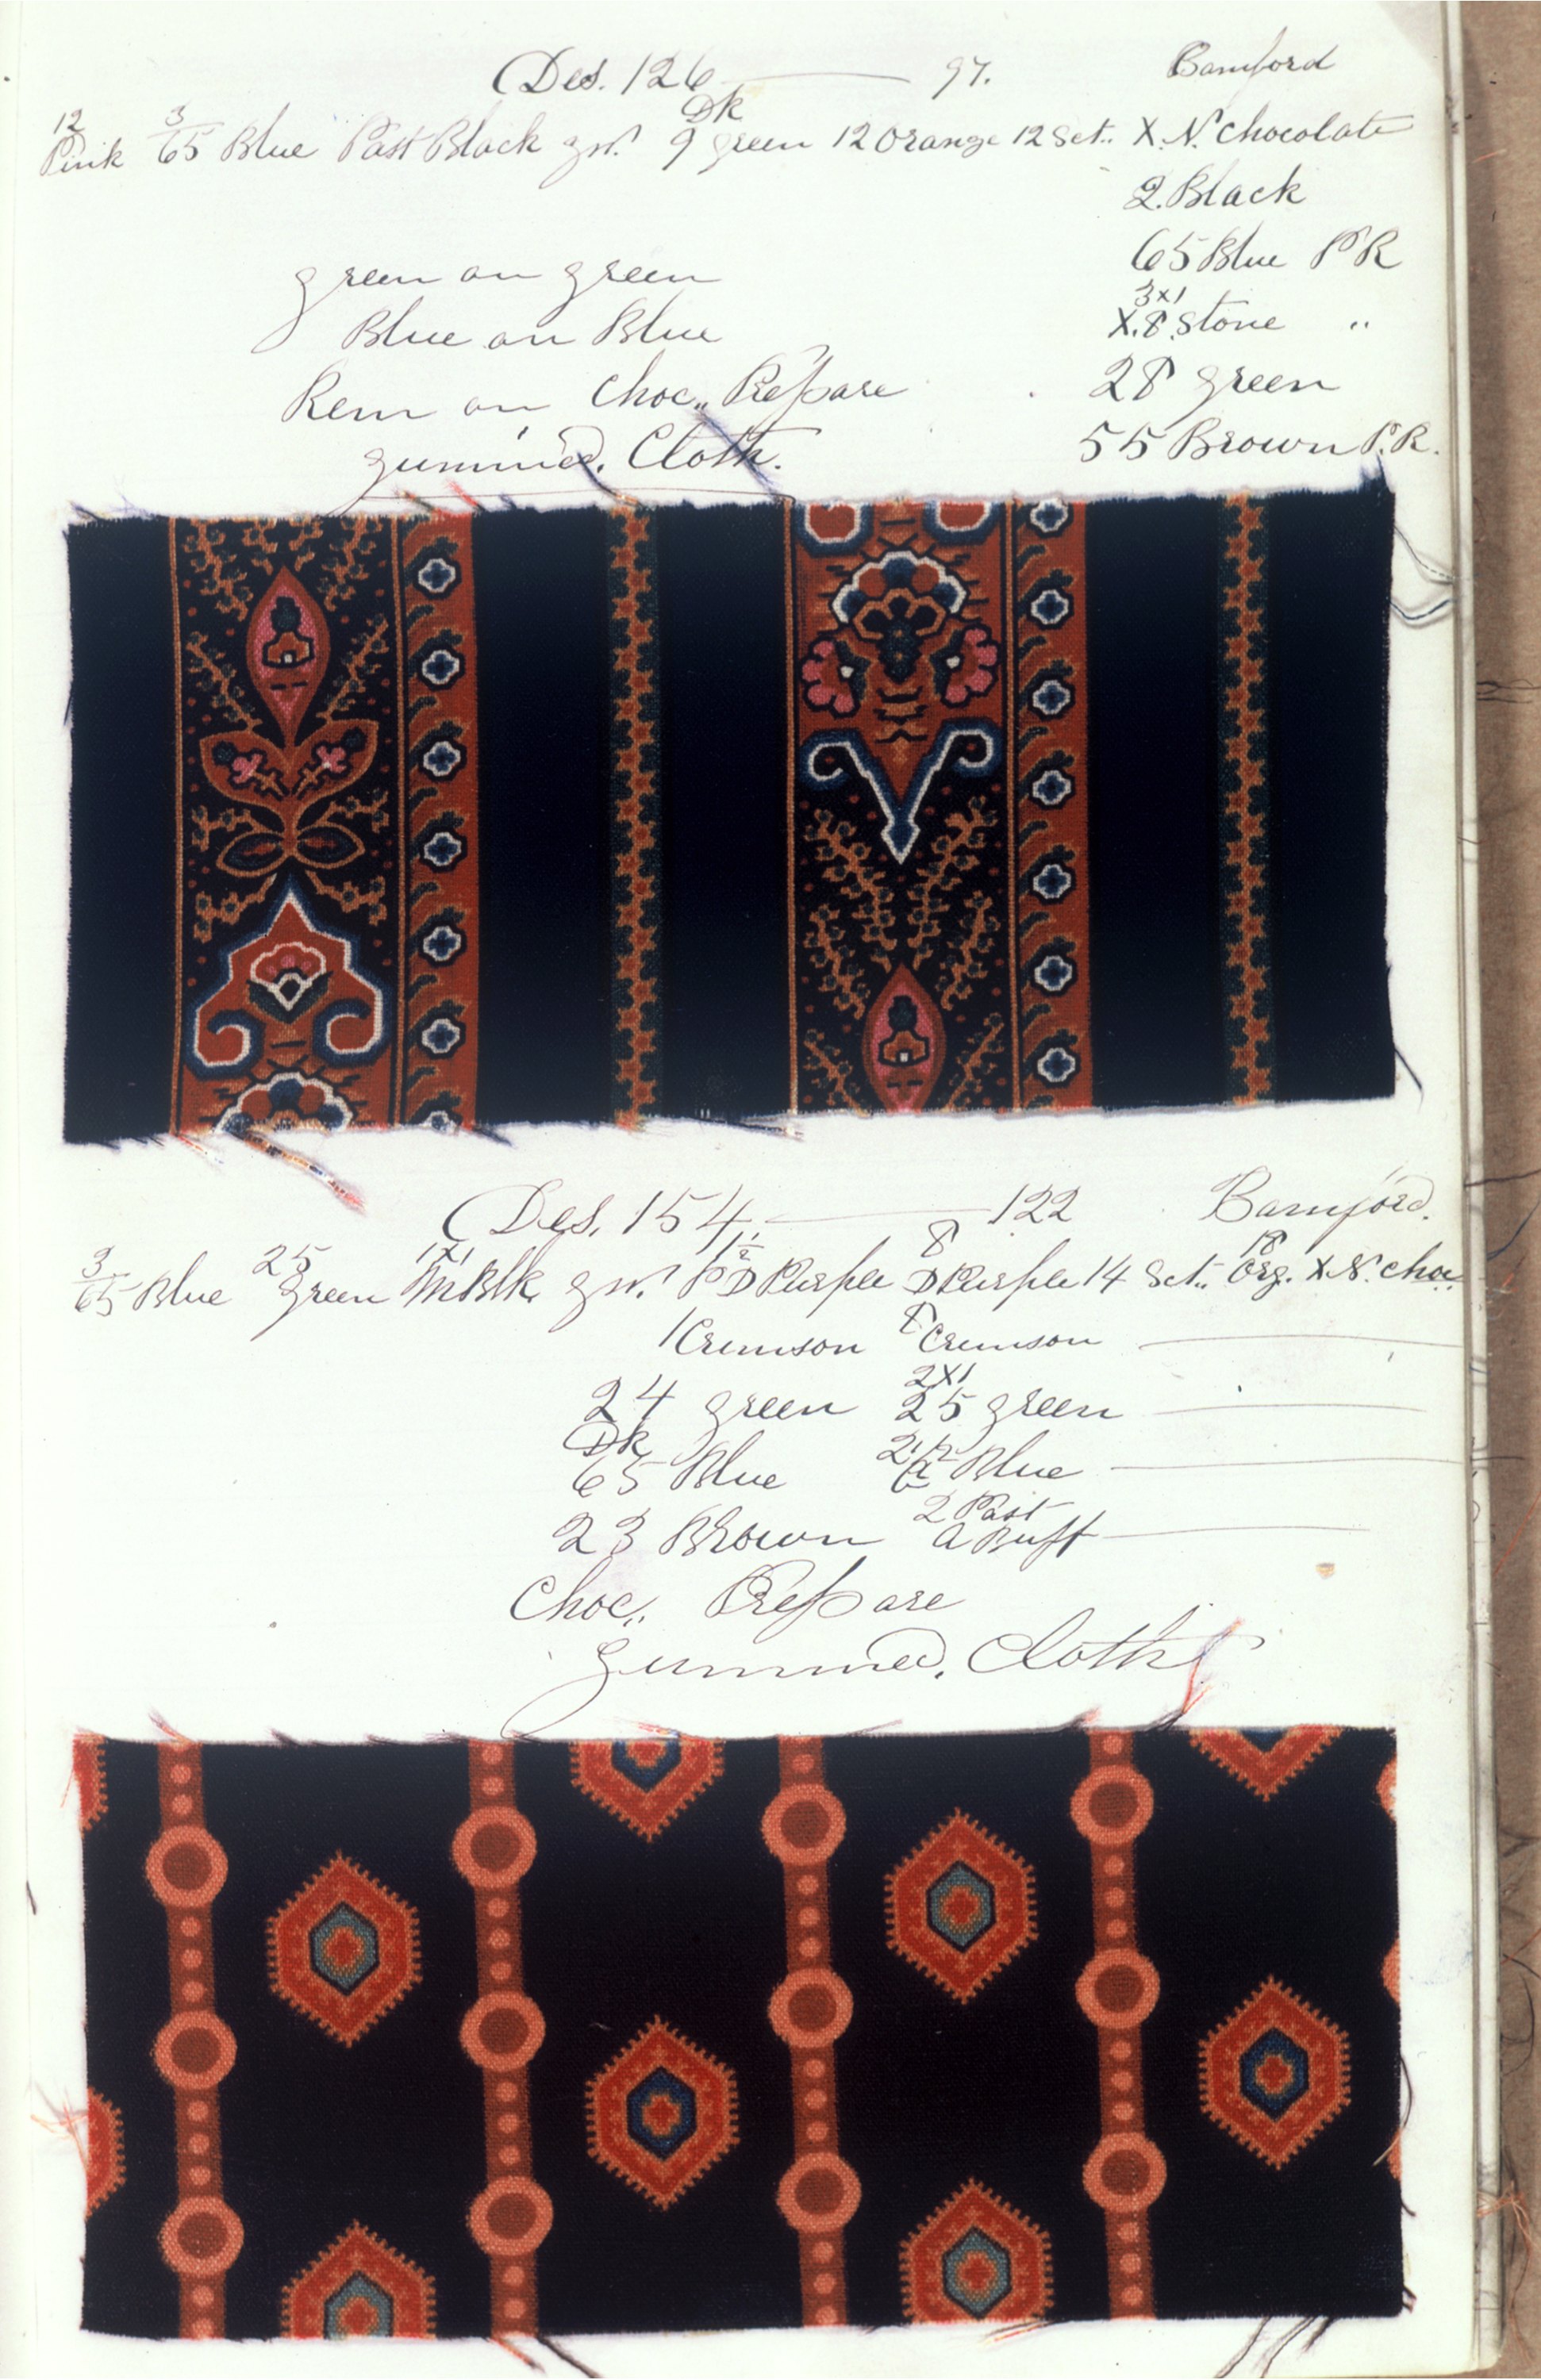 Des. 126 — 97. Bamford
12 Pink 3/65 Blue Past Black gn. Dk 9 green 12 Orange 12 Set.. X.N. Chocolate
2. Black
65 Blue P R
green on green
3x1
Blue on Blue X.8. Stone "
Rem on Choc,, Prepare 28 green
gummed. Cloth. 55 Brown P.R.
Des. 154. — 122 Bamford.
3/65 Blue 25 green 1x1 M Blk. gn. D Purple 8 D Purple 14 Set.. 18 Org. X.N. Choc
1 Crimson 8 Crimson —
2x1
24 green 25 green —
Dk
65 Blue Blue —
2 Past
23 Brown a Buff —
Choc,. Prepare
gummed. Cloth